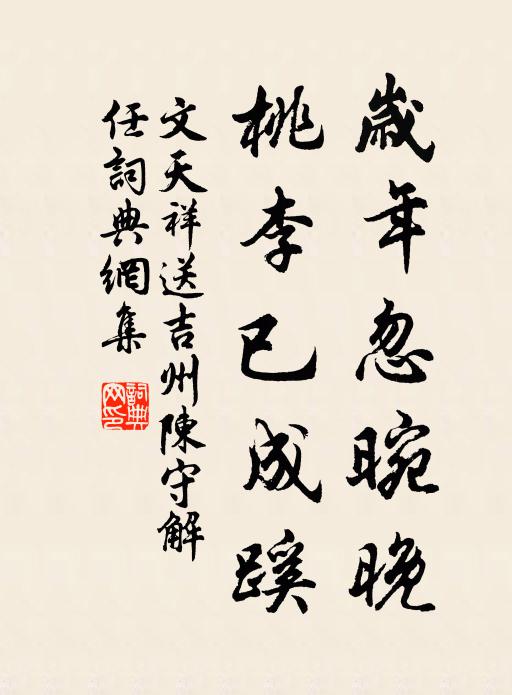 歲年忽晼晚
桃李已成蹊
文天祥送吉州陳守解
任詞典網集
詞典網印